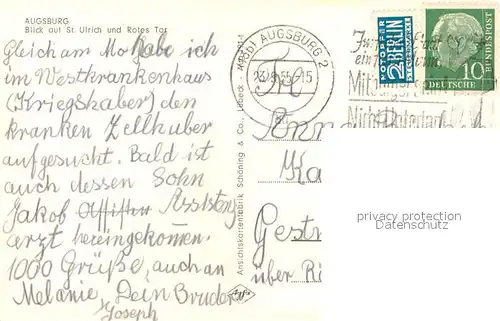 AUGSBURG
Blick auf St. Ulrich und Rotes Tor
Gleich am Mo habe ich
im Westkrankenhaus
(Kriegshaber) den
kranken Zellhuber
aufgesucht. Bald ist
auch dessen Sohn
Jakob Assistenz
arzt hereingekommen.
1000 Grüße, auch an
Melanie, Dein Bruder
Joseph
Ansichtskartenfabrik Schöning & Co., Lübeck
Agfa
AUGSBURG 2
NOTOPFER
2 BERLIN
STEUERMARKE
10
DEUTSCHE BUNDESPOST
Anna
Ka
Gestr
über Ri
privacy protection
Datenschutz